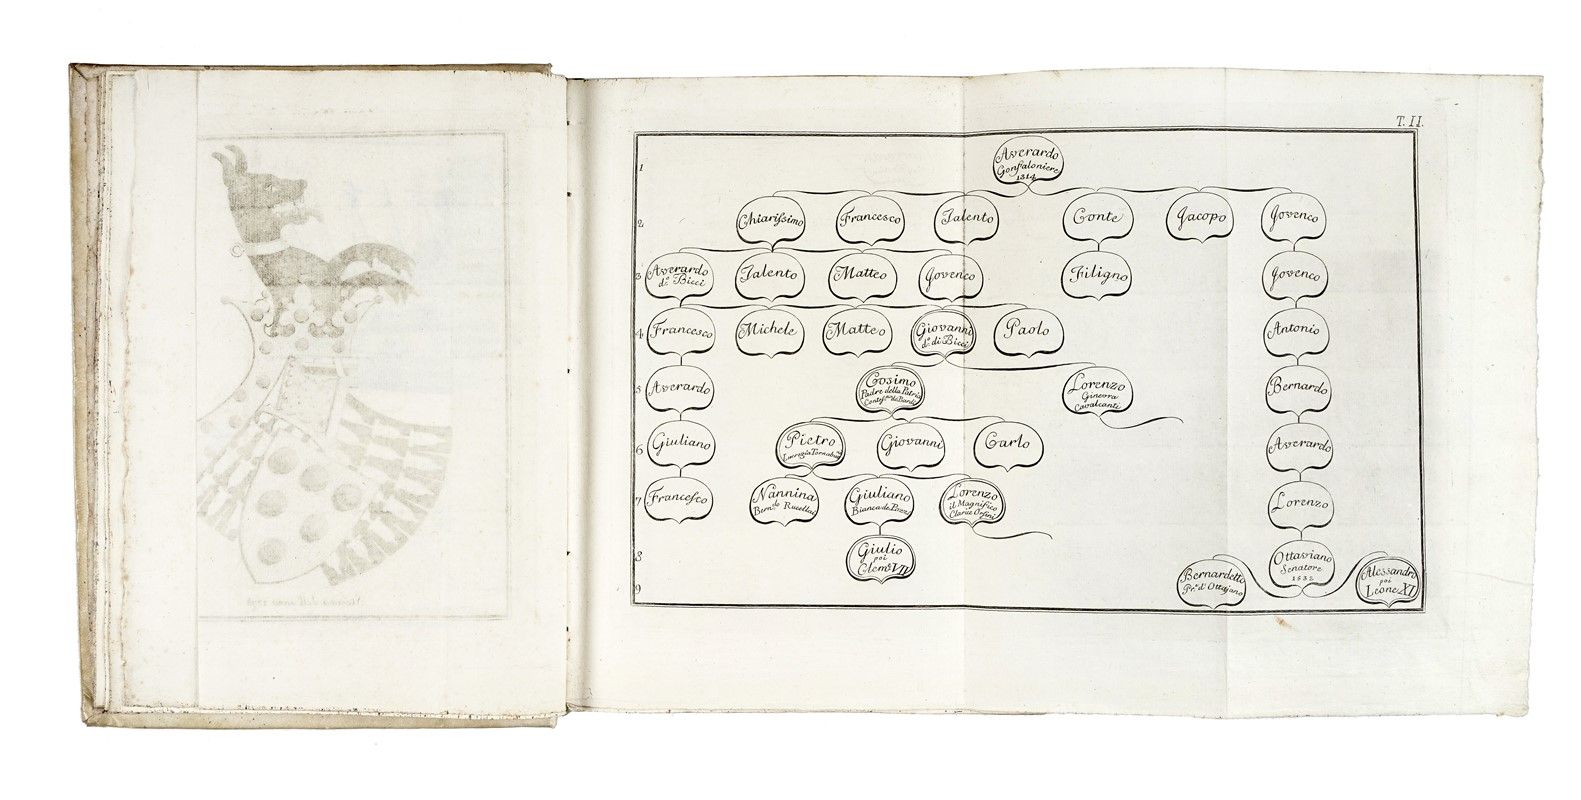 T. II.
1
Averardo
Gonfaloniere
1314
2
Chiarissimo
Francesco
Talento
Conte
Jacopo
Jovenco
3
Averardo
d.º Bicci
Talento
Matteo
Jovenco
Filigno
Jovenco
4
Francesco
Michele
Matteo
Giovanni
d.º di Bicci
Paolo
Antonio
5
Averardo
Cosimo
Padre della Patria
Lorenzo
Ginevra
Cavalcanti
Bernardo
6
Giuliano
Pietro
Giovanni
Carlo
Averardo
7
Francesco
Nannina
Bern.do Rucellai
Giuliano
Bianca de Pazzi
Lorenzo
il Magnifico
Clarice Orsini
Lorenzo
8
Giulio
poi
Clem.e VII
Ottaviano
Senatore
1532
9
Bernardetto
Pr.e d'Ottajano
Alessandro
poi
Leone XI